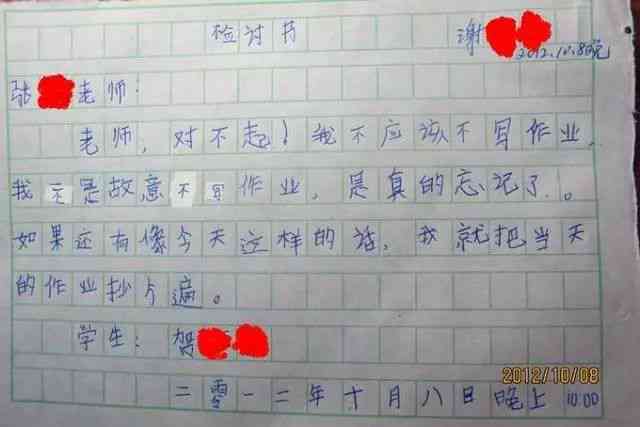 检讨书 谢
2012.10.8晚
张 老师：
老师，对不起！我不应该不写作业，
我不是故意不写作业，是真的忘记了。
如果还有像今天这样的话，我就把当天
的作业抄 遍。
学生：贺
2012/10/08
二零一二年十月八日晚上 10:00